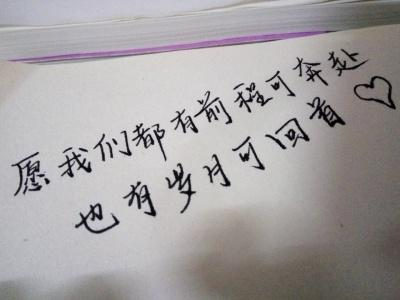 愿我们都有前程可奔赴
也有岁月可回首♡